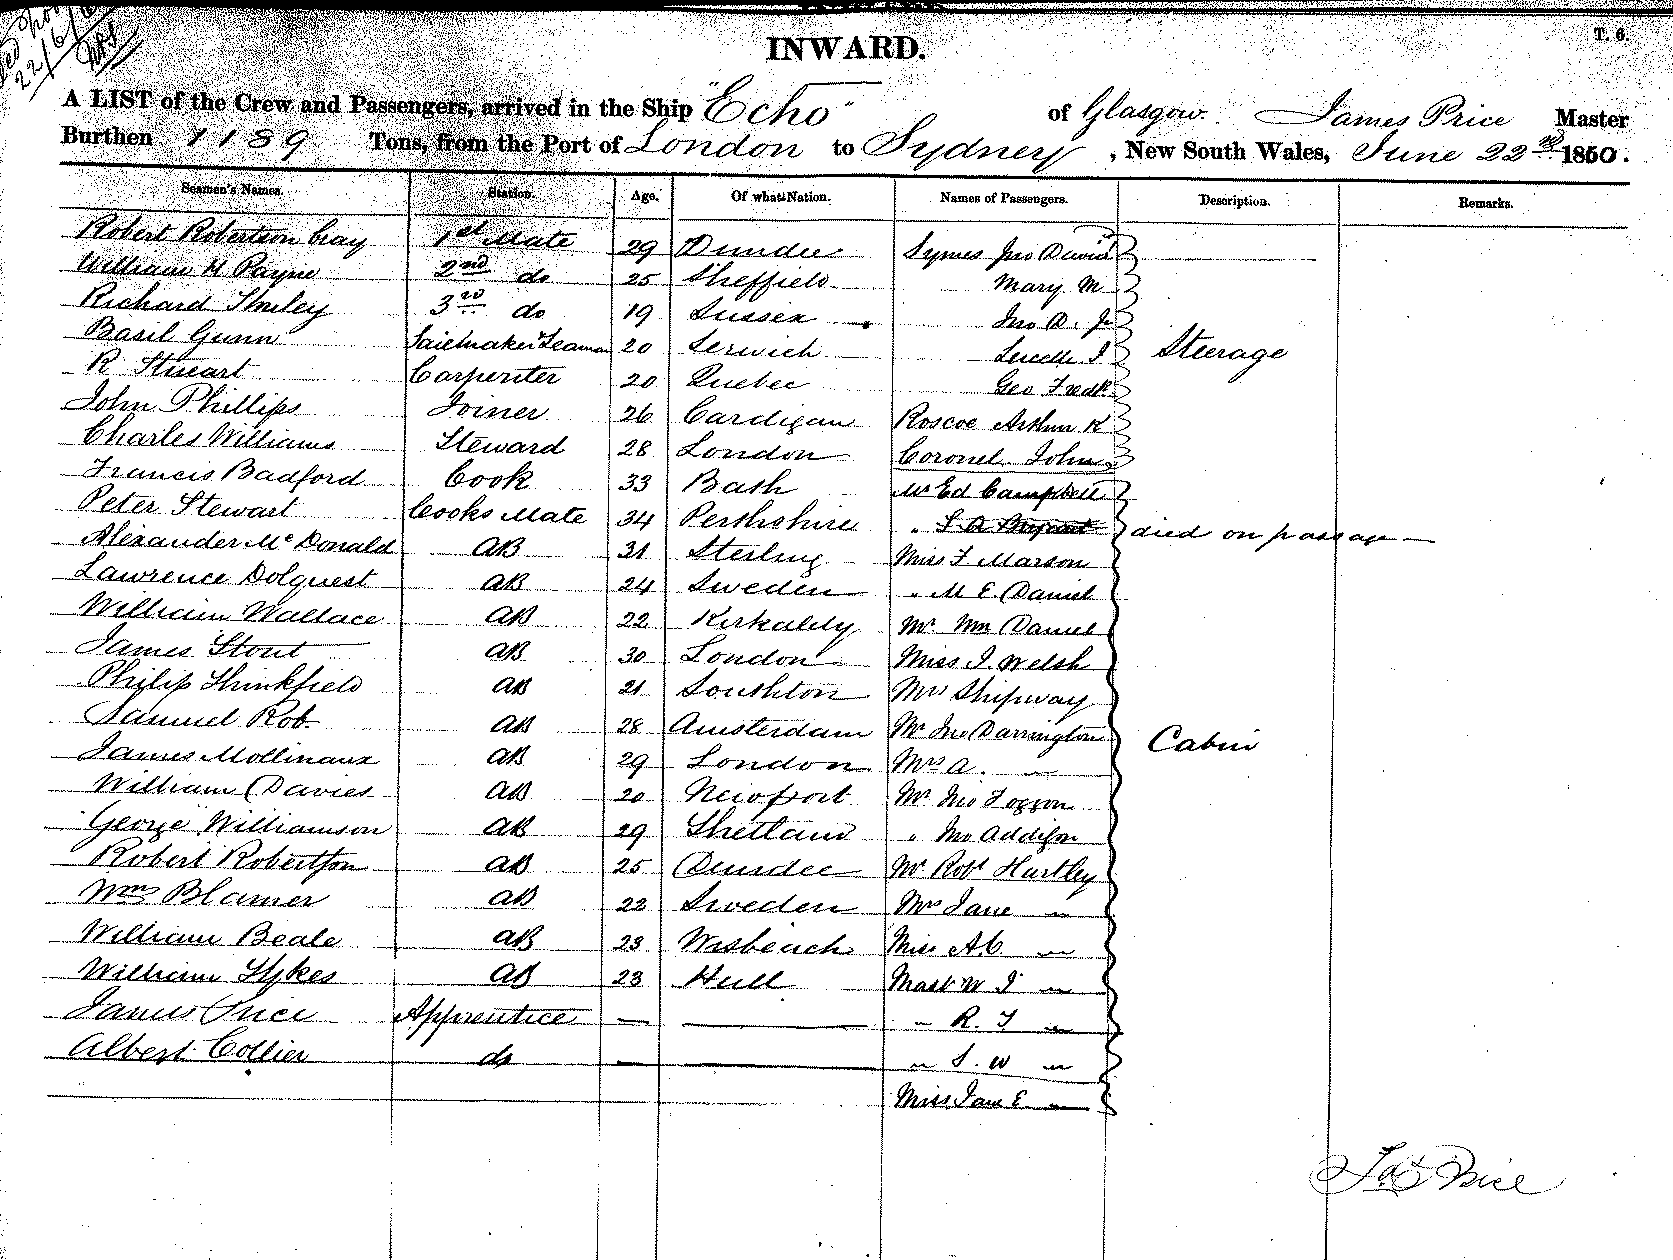 22/6/
INWARD.
T. 6.
A LIST of the Crew and Passengers, arrived in the Ship "Echo" of Glasgow. James Price Master
Burthen 1189 Tons, from the Port of London to Sydney, New South Wales, June 22nd 1860.
Seamen's Names. Station. Age. Of what Nation. Names of Passengers. Description. Remarks.
Robert Robertson Gray 1st Mate 29 Dundee Symes Jno David
William H Payne 2nd do 25 Sheffield Mary M
Richard Smiley 3rd do 19 Sussex Jno D. Jr
Basil Gunn Sailmaker & Seaman 20 Lerwick J Steerage
R Stueart Carpenter 20 Quebec Geo Fredk
John Phillips Joiner 26 Cardigan Roscoe Arthur K
Charles Williams Steward 28 London Coronel John
Francis Badford Cook 33 Bath Mr Ed Campbell
Peter Stewart Cooks Mate 34 Perthshire " S A died on passage
Alexander McDonald AB 31 Sterling Miss F Marson
Lawrence Dolquest AB 24 Sweden " M E. Daniel
William Wallace AB 22 Kirkaldy Mr Wm Daniel
James Stout AB 30 London Miss J Welsh
Philip Shinkfield AB 21 Soushton Mrs Shipway
Samuel Rob. AB 28 Amsterdam Mr Jno Darrington Cabin
James Mollinaux AB 29 London Mrs A. "
William Davies AB 20 Newport Mr Jno Foggon
George Williamson AB 29 Shetland " Jno Addison
Robert Robertson AB 25 Dundee Mr Robt Hurtley
Wm Blamer AB 22 Sweden Mrs Jane "
William Beale AB 23 Wisbeach Miss A C "
William Sykes AB 23 Hull Mast W J "
James Price Apprentice — — " R. J "
Albert Collier do — — " S. W "
Miss Jane E "
Jas Price